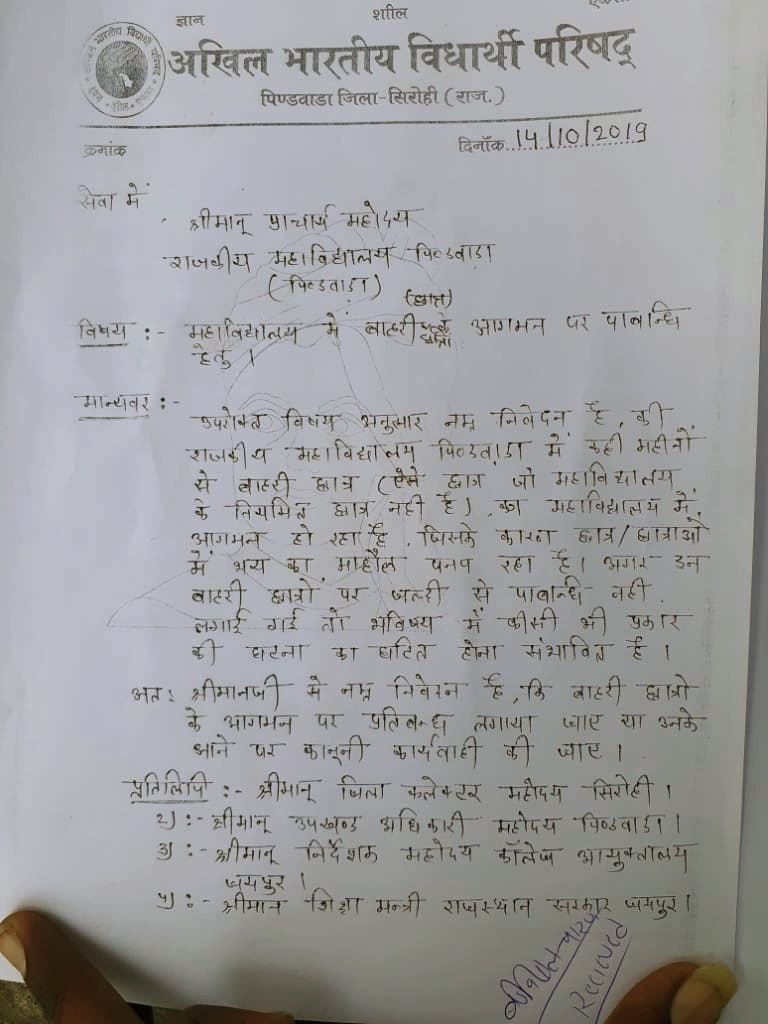 ज्ञान शाील
अखिल भारतीय विधार्थी परिषद्
पिण्डवाडा जिला-सिरोही (राज.)
क्रमांक दिनाँक 14/10/2019
सेवा में
श्रीमान् प्राचार्य महोदय
राजकीय महाविद्यालय पिण्डवाडा
(पिण्डवाडा)
(छात्र)
विषय :- महाविद्यालय में बाहरी आगमन पर पाबन्धि
हेतु ।
मान्यवर :-
उपरोक्त विषय अनुसार नम्र निवेदन है, की
राजकीय महाविद्यालय पिण्डवाडा में कही महीनों
से बाहरी छात्र (ऐसे छात्र जो महाविद्यालय
के नियमित छात्र नही है) का महाविद्यालय में
आगमन हो रहा है, जिसके कारण छात्र/छात्राओ
में भय का माहौल पनप रहा है। अगर उन
बाहरी छात्रों पर जल्दी से पाबन्धि नही
लगाई गई तो भविषय में कीसी भी प्रकार
की घटना का घटित होना संभावित है ।
अत: श्रीमानजी से नम्र निवेदन है, कि बाहरी छात्रो
के आगमन पर प्रतिबन्ध लगाया जाए या उनके
आने पर कानूनी कार्यवाही की जाए ।
प्रतिलिपी :- श्रीमान् जिला कलेक्टर महोदय सिरोही ।
२) :- श्रीमान् उपखण्ड अधिकारी महोदय पिण्डवाडा ।
३) :- श्रीमान् निर्देशक महोदय कॉलेज आयुक्तालय
जयपुर ।
४) :- श्रीमान शिक्षा मन्त्री राजस्थान सरकार जयपुर ।
Received